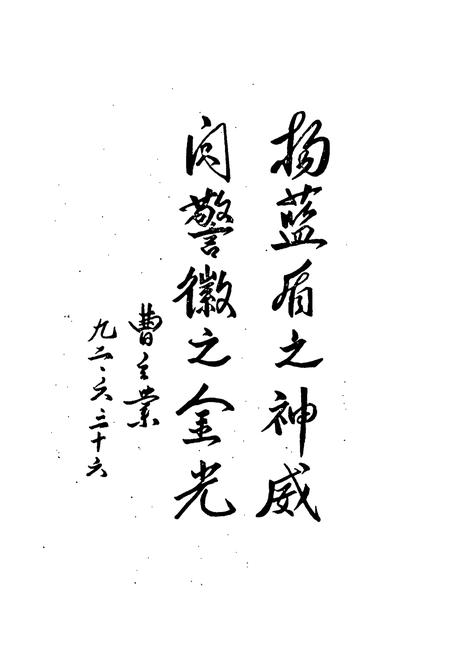 扬蓝盾之神威
闪警徽之金光
曹主業
九二、六、二十六